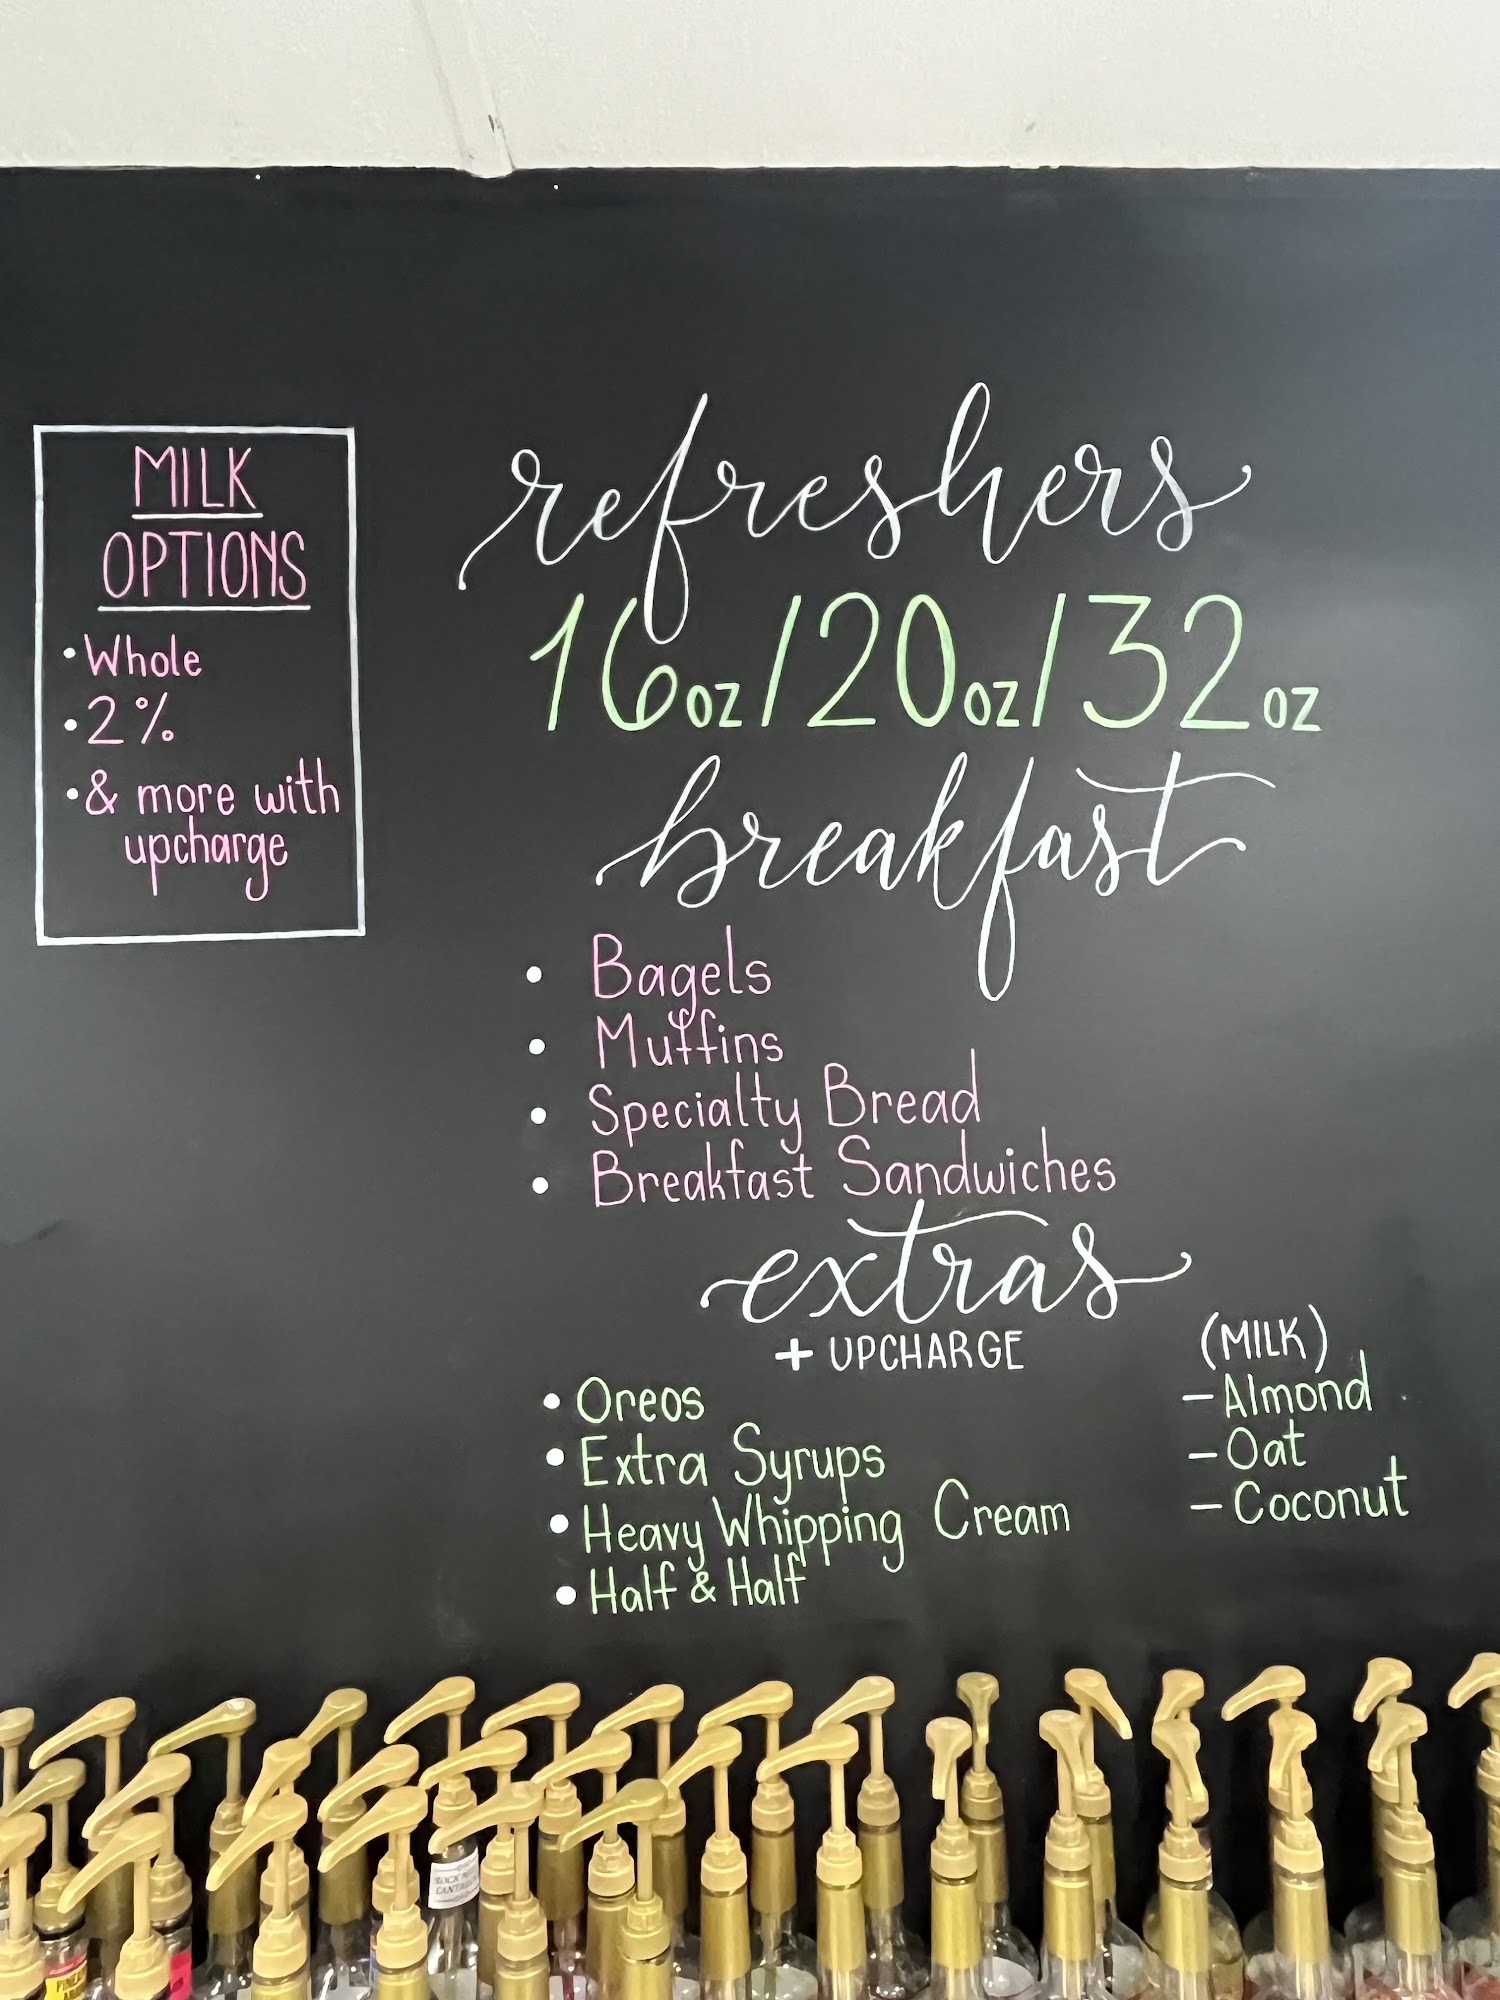 MILK
OPTIONS
• Whole
• 2%
• & more with
upcharge
refreshers
16oz/20oz/32oz
breakfast
• Bagels
• Muffins
• Specialty Bread
• Breakfast Sandwiches
extras
+ UPCHARGE
• Oreos
• Extra Syrups
• Heavy Whipping Cream
• Half & Half
(MILK)
- Almond
- Oat
- Coconut